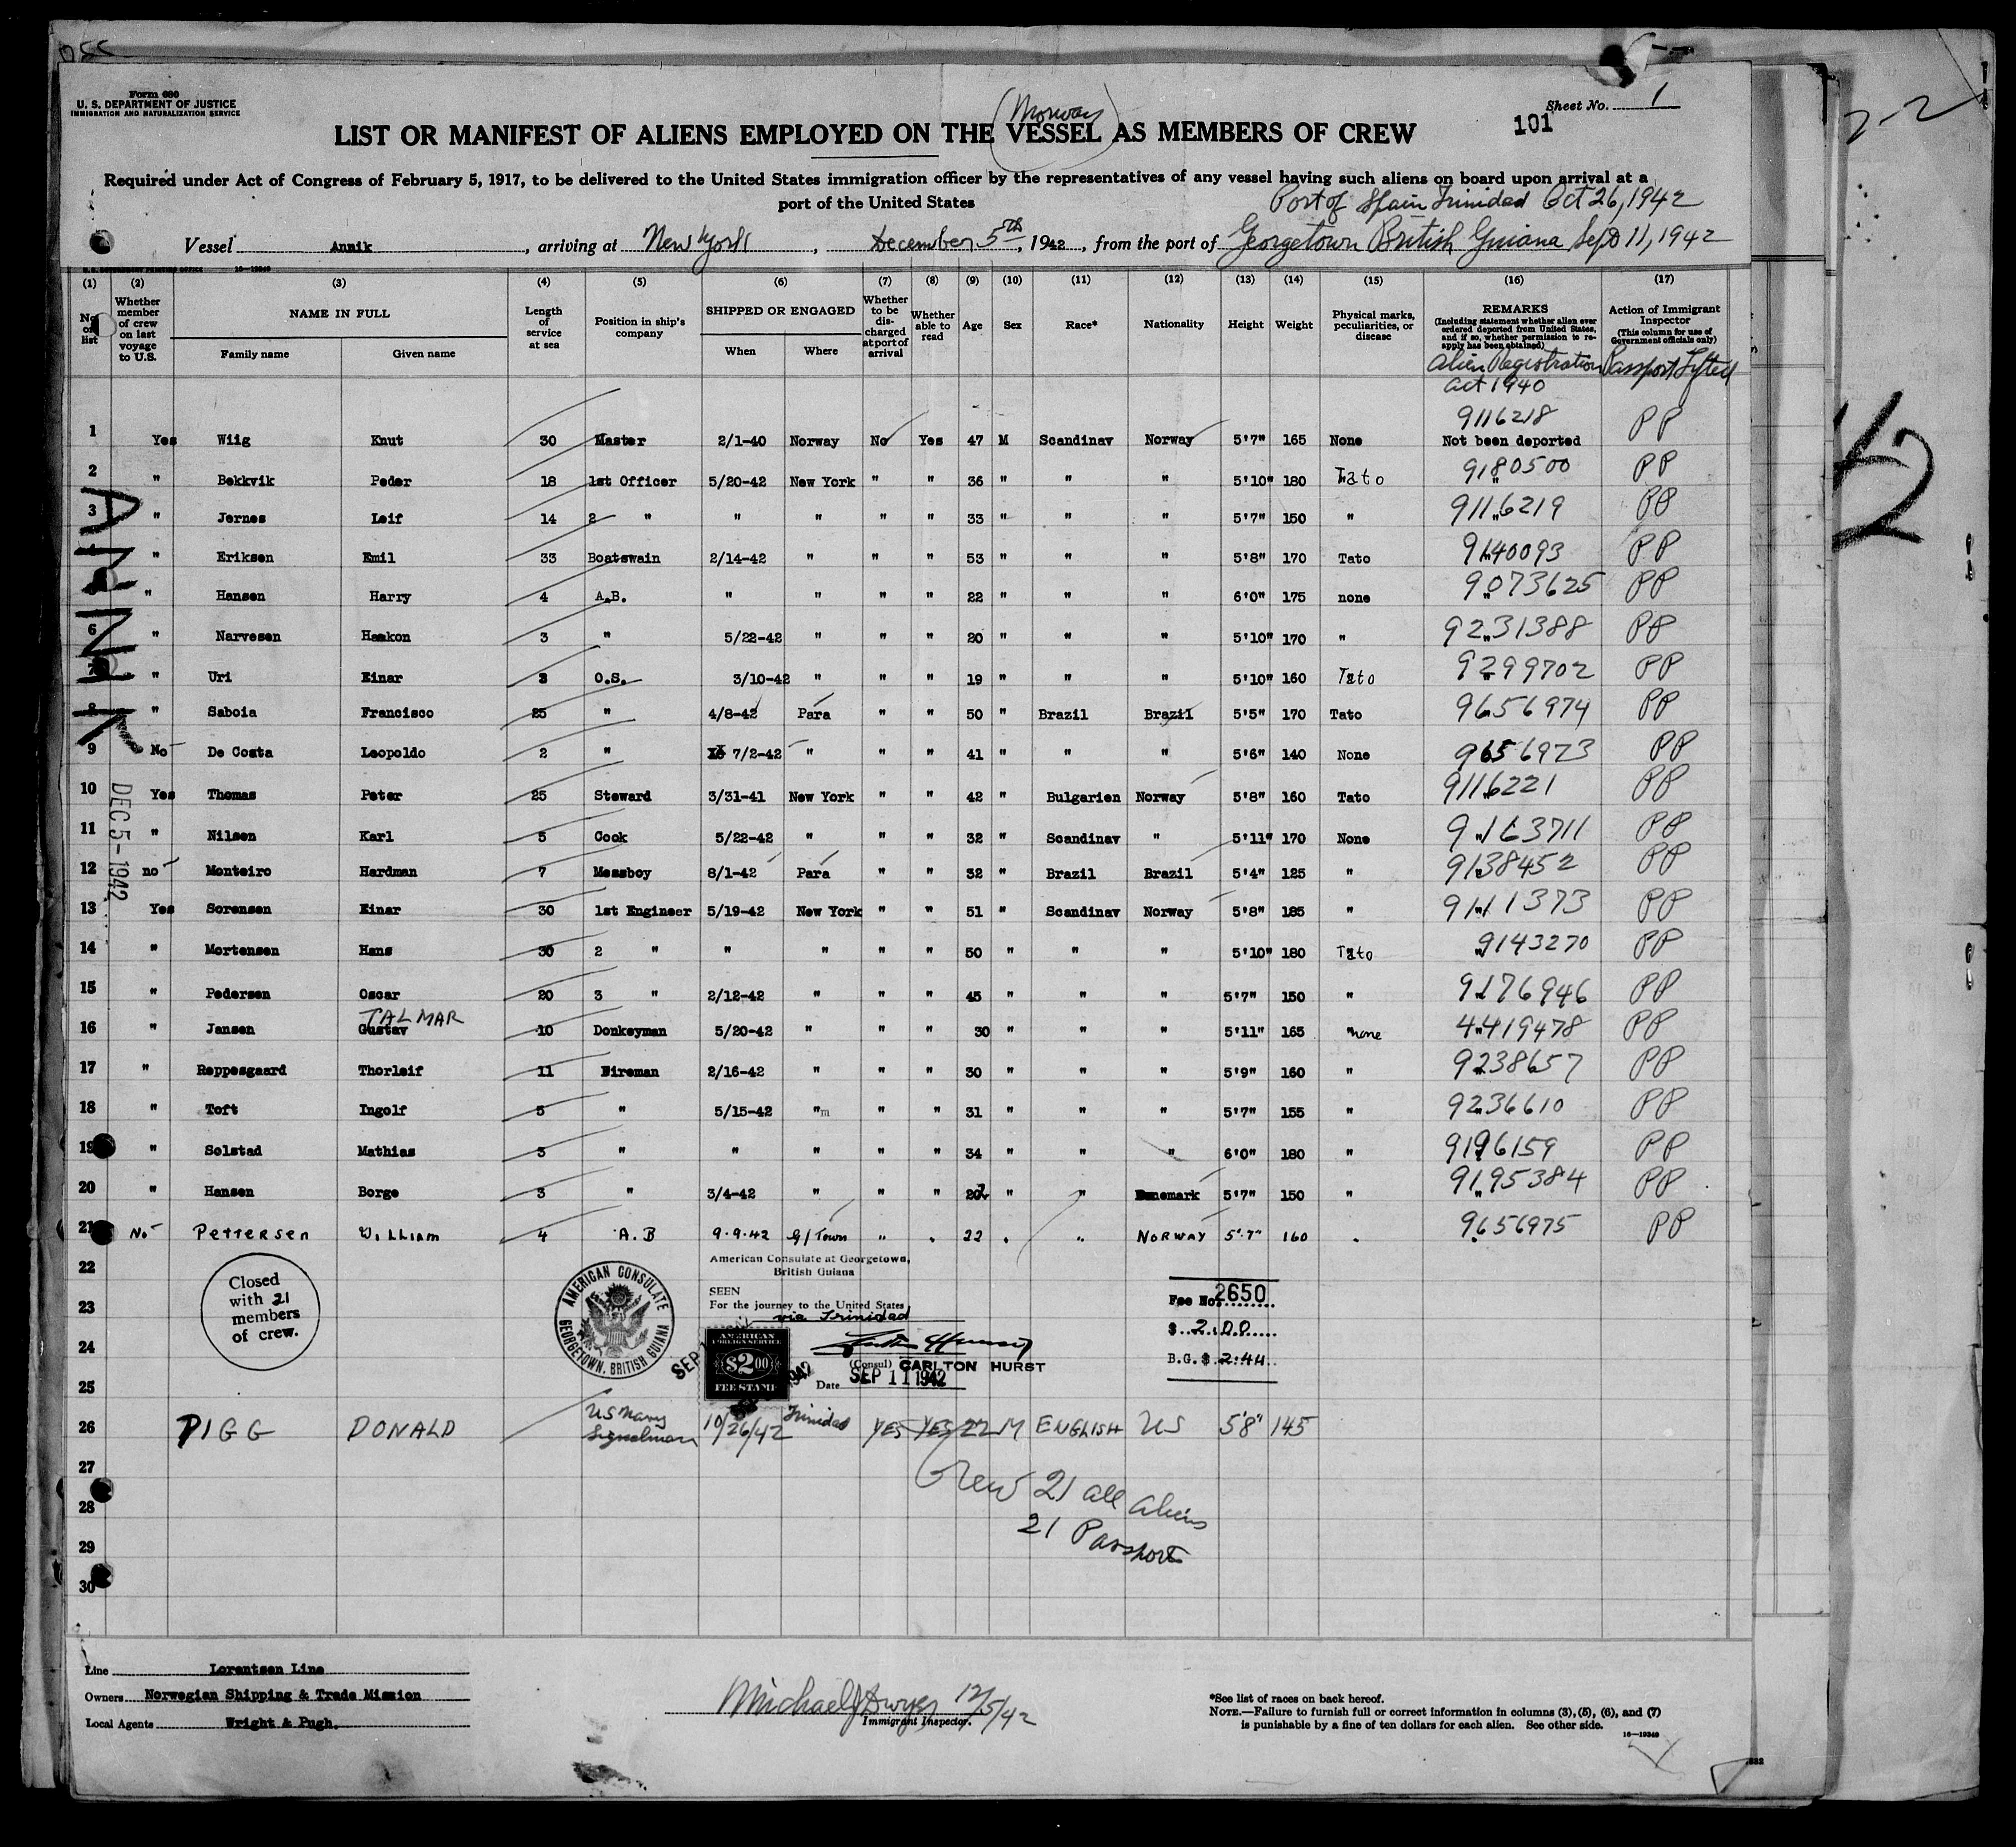 Form 680
U. S. DEPARTMENT OF JUSTICE
IMMIGRATION AND NATURALIZATION SERVICE
Sheet No. 1
101
(Norway)
LIST OR MANIFEST OF ALIENS EMPLOYED ON THE VESSEL AS MEMBERS OF CREW
Required under Act of Congress of February 5, 1917, to be delivered to the United States immigration officer by the representatives of any vessel having such aliens on board upon arrival at a
port of the United States
Port of Spain Trinidad Oct 26, 1942
Vessel Annik, arriving at New York, December 5th, 1942, from the port of Georgetown British Guiana Sept 11, 1942
(1) (2) (3) (4) (5) (6) (7) (8) (9) (10) (11) (12) (13) (14) (15) (16) (17)
No. on list
Whether member of crew on last voyage to U.S.
NAME IN FULL
Family name Given name
Length of service at sea
Position in ship's company
SHIPPED OR ENGAGED
When Where
Whether to be discharged at port of arrival
Whether able to read
Age
Sex
Race*
Nationality
Height
Weight
Physical marks, peculiarities, or disease
REMARKS
(Including statement whether alien ever ordered deported from United States, and if so, whether permission to reapply has been obtained)
Action of Immigrant Inspector
(This column for use of Government officials only)
Alien Registration act 1940
Passport Lifted
9116218
1 Yes Wiig Knut 30 Master 2/1-40 Norway No Yes 47 M Scandinav Norway 5'7" 165 None Not been deported PP
2 " Bekkvik Peder 18 1st Officer 5/20-42 New York " " 36 " " " 5'10" 180 Tato 9180500 PP
3 " Jernes Leif 14 2 " " " " " 33 " " " 5'7" 150 " 9116219 PP
" Eriksen Emil 33 Boatswain 2/14-42 " " " 53 " " " 5'8" 170 Tato 9140093 PP
" Hansen Harry 4 A.B. " " " " 22 " " " 6'0" 175 none 9073625 PP
6 " Narvesen Haakon 3 " 5/22-42 " " " 20 " " " 5'10" 170 " 9231388 PP
7 " Uri Einar 3 O.S. 3/10-42 " " " 19 " " " 5'10" 160 Tato 9299702 PP
8 " Saboia Francisco 25 " 4/8-42 Para " " 50 " Brazil Brazil 5'5" 170 Tato 9656974 PP
9 No De Costa Leopoldo 2 " 7/2-42 " " " 41 " " " 5'6" 140 None 9656973 PP
10 Yes Thomas Peter 25 Steward 3/31-41 New York " " 42 " Bulgarien Norway 5'8" 160 Tato 9116221 PP
11 " Nilsen Karl 5 Cook 5/22-42 " " " 32 " Scandinav " 5'11" 170 None 9163711 PP
12 no Monteiro Hardman 7 Messboy 8/1-42 Para " " 32 " Brazil Brazil 5'4" 125 " 9138452 PP
13 Yes Sorensen Einar 30 1st Engineer 5/19-42 New York " " 51 " Scandinav Norway 5'8" 185 " 9111373 PP
14 " Mortensen Hans 30 2 " " " " " 50 " " " 5'10" 180 Tato 9143270 PP
15 " Pedersen Oscar 20 3 " 2/12-42 " " " 45 " " " 5'7" 150 " 9176946 PP
TALMAR
16 " Jansen Gustav 10 Donkeyman 5/20-42 " " " 30 " " " 5'11" 165 none 4419478 PP
17 " Reppesgaard Thorleif 11 Fireman 2/16-42 " " " 30 " " " 5'9" 160 " 9238657 PP
18 " Toft Ingolf 5 " 5/15-42 "m " " 31 " " " 5'7" 155 " 9236610 PP
19 " Solstad Mathias 3 " " " " " 34 " " " 6'0" 180 " 9196159 PP
20 " Hansen Borge 3 " 3/4-42 " " " 202 " " Denemark 5'7" 150 " 9195384 PP
21 No Pettersen William 4 A.B 9.9.42 G/Town " . 22 . " NORWAY 5'.7" 160 . 9656975 PP
22
23
24
25
Closed
with 21
members
of crew.
AMERICAN CONSULATE
GEORGETOWN, BRITISH GUIANA
American Consulate at Georgetown,
British Guiana
SEEN
For the journey to the United States
via Trinidad
(Consul) CARLTON HURST
Date SEP 11 1942
AMERICAN
FOREIGN SERVICE
$2.00
FEE STAMP
Fee No. 2650
$ 2.00
B.G.$ 2.44
26 PIGG DONALD US Navy Signalman 10/26/42 Trinidad YES YES 22 M ENGLISH US 5'8" 145
27
28
29
30
Crew 21 all aliens
21 Passports
ANNIK
DEC 5-1942
Line Lorentzen Line
Owners Norwegian Shipping & Trade Mission
Local Agents Wright & Pugh.
Michael J Dwyer 12/5/42
Immigrant Inspector.
*See list of races on back hereof.
NOTE.—Failure to furnish full or correct information in columns (3), (5), (6), and (7)
is punishable by a fine of ten dollars for each alien. See other side.
16—19340